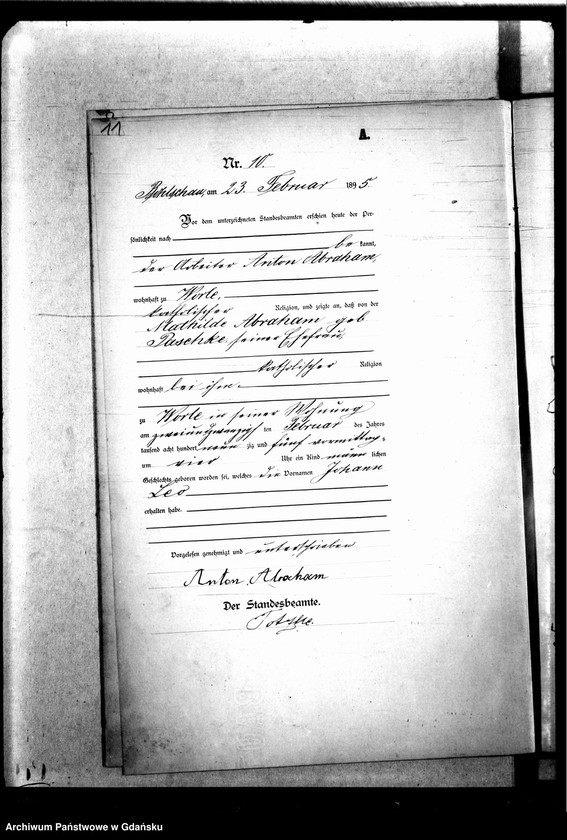 11
A.
Nr. 10.
Bohlschau, am 23. Februar 1895.
Vor dem unterzeichneten Standesbeamten erschien heute der Per-
sönlichkeit nach
be kannt,
der Arbeiter Anton Abraham,
wohnhaft zu Worle,
katholischer Religion, und zeigte an, daß von der
Mathilde Abraham geb
Paschke seiner Ehefrau,
katholischer Religion
wohnhaft bei ihm
zu Worle in seiner Wohnung
am zweiundzwanzigsten Februar des Jahres
tausend acht hundert neunzig und fünf vormittags
um vier Uhr ein Kind männlichen
Geschlechts geboren worden sei, welches die Vornamen Johann
Leo
erhalten habe.
Vorgelesen, genehmigt und unterschrieben
Anton Abraham
Der Standesbeamte.
Archiwum Państwowe w Gdańsku